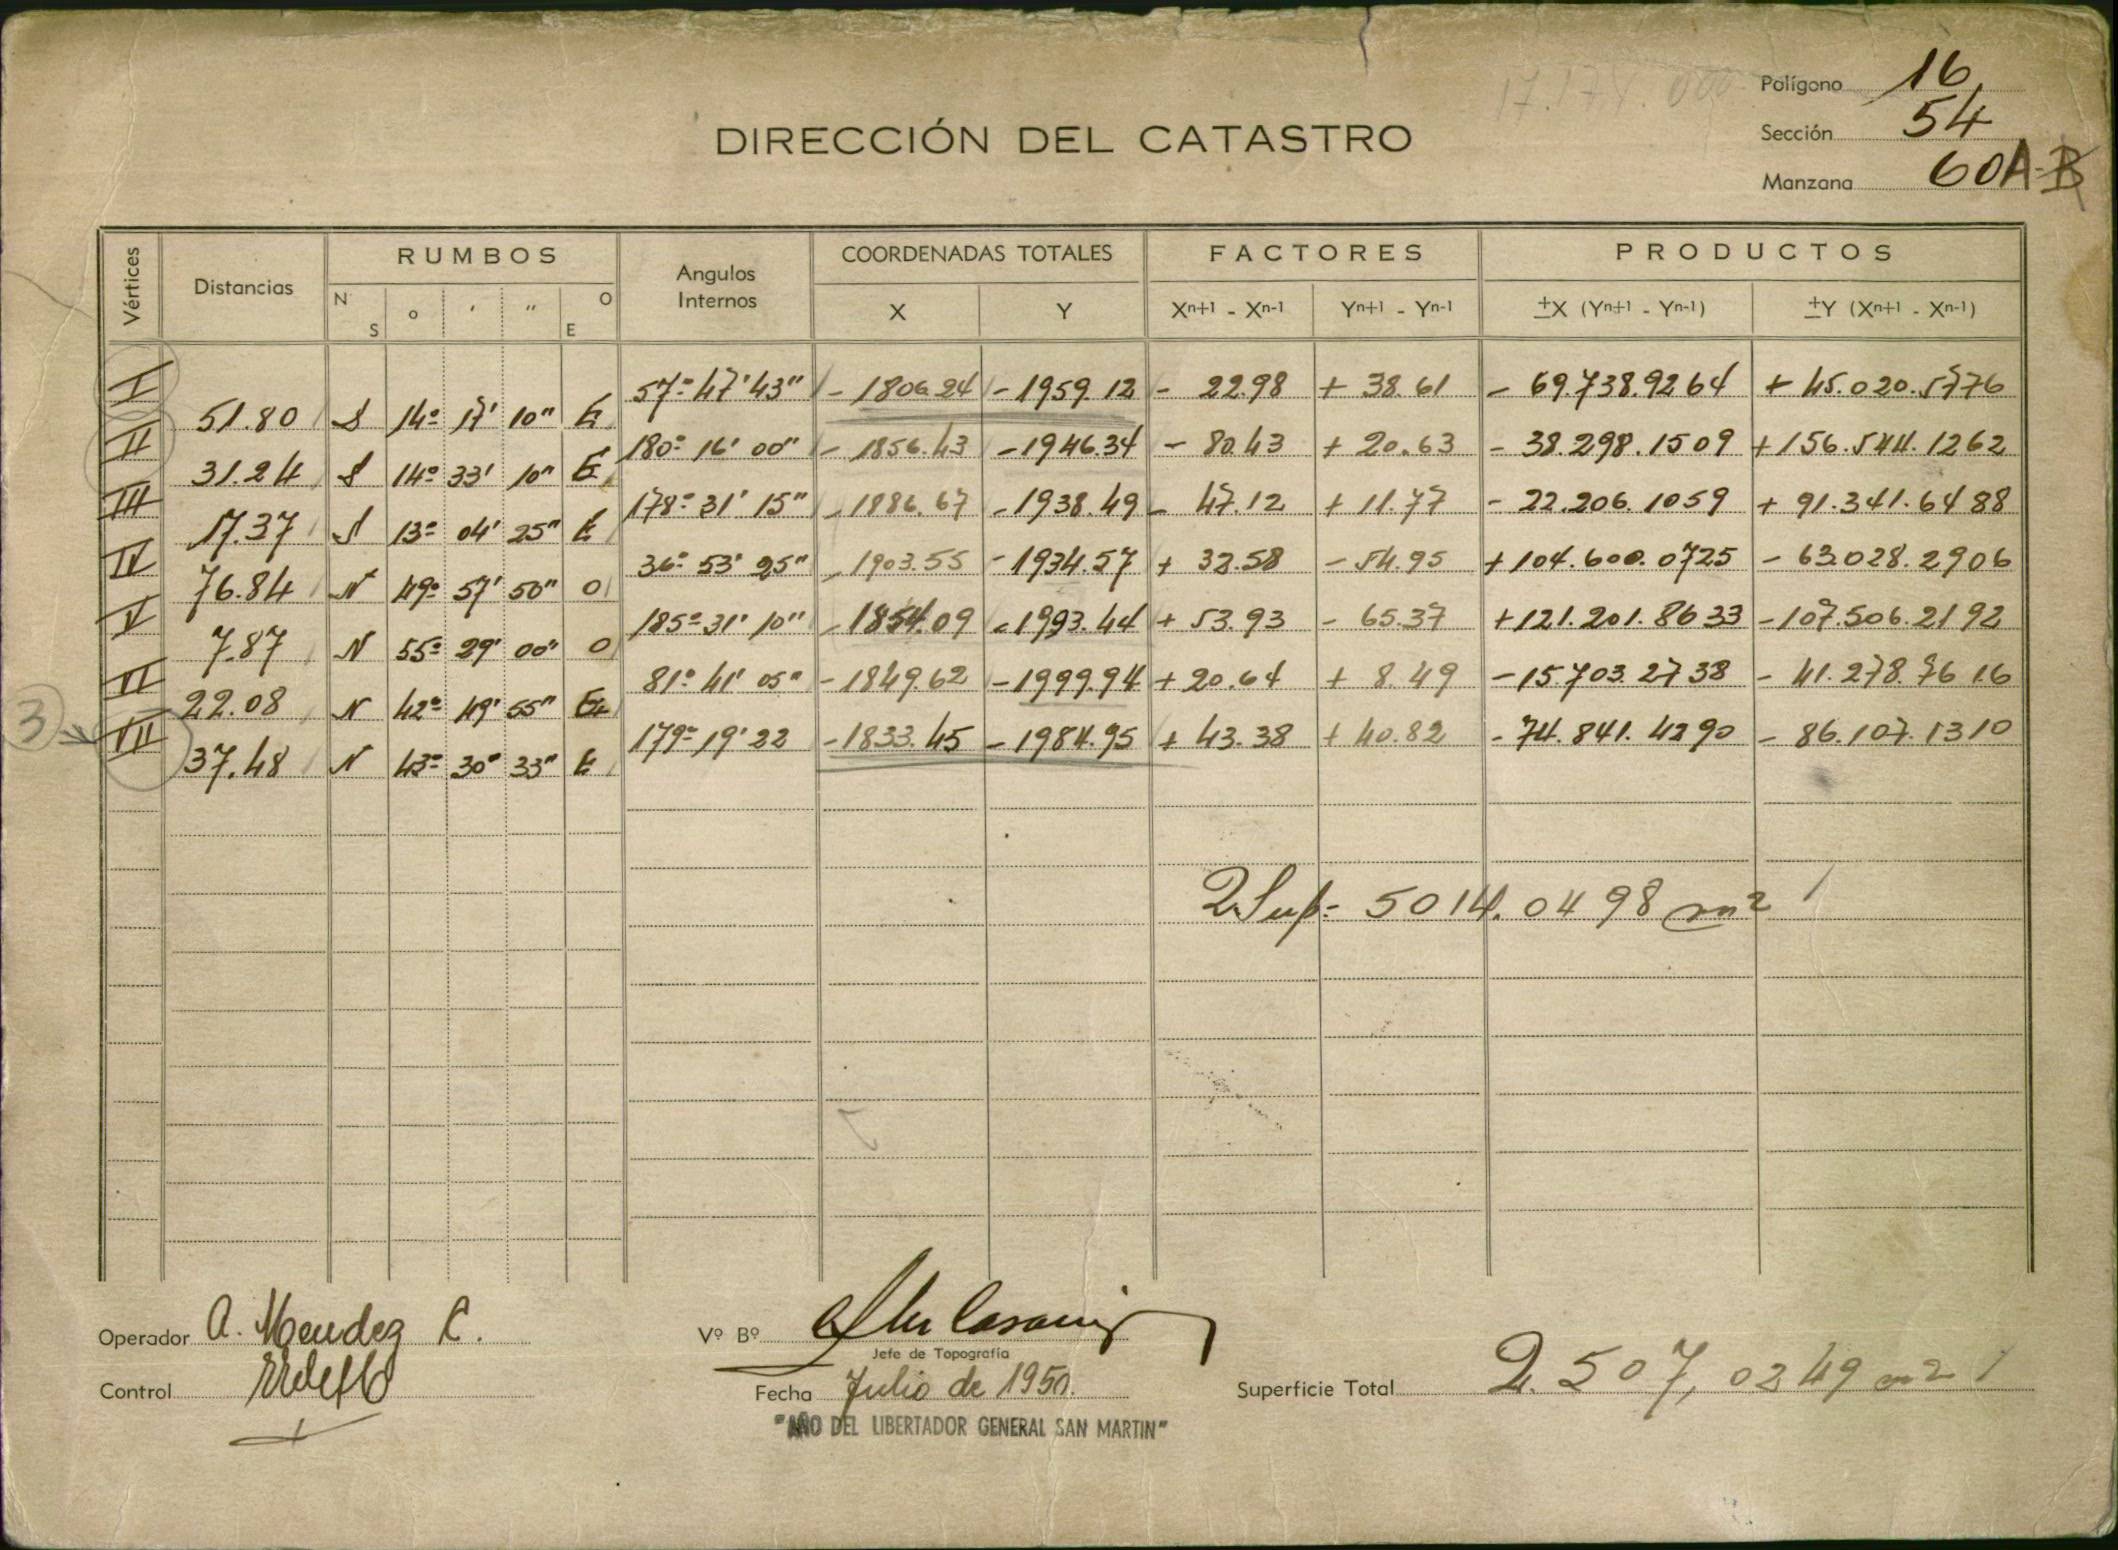 17.174.000
Polígono 16
Sección 54
Manzana 60A-B
DIRECCIÓN DEL CATASTRO
Vértices Distancias RUMBOS Angulos Internos COORDENADAS TOTALES FACTORES PRODUCTOS
N S o ' " O E X Y Xn+1 - Xn-1 Yn+1 - Yn-1 ±X (Yn+1 - Yn-1) ±Y (Xn+1 - Xn-1)
I 57º 47' 43" - 1806.24 - 1959.12 - 22.98 + 38.61 - 69.738.9264 + 45.020.5776
51.80 S 14º 17' 10" E
II 180º 16' 00" - 1856.43 - 1946.34 - 80.43 + 20.63 - 38.298.1509 + 156.544.1262
31.24 S 14º 33' 10" E
III 178º 31' 15" - 1886.67 - 1938.49 - 47.12 + 11.77 - 22.206.1059 + 91.341.6488
17.37 S 13º 04' 25" E
IV 36º 53' 25" - 1903.55 - 1934.57 + 32.58 - 54.95 + 104.600.0725 - 63.028.2906
76.84 N 49º 57' 50" O
V 185º 31' 10" - 1854.09 - 1993.44 + 53.93 - 65.37 + 121.201.8633 - 107.506.2192
7.87 N 55º 29' 00" O
VI 81º 41' 05" - 1849.62 - 1999.94 + 20.64 + 8.49 - 15.703.2738 - 41.278.7616
22.08 N 42º 49' 55" E
3 VII 179º 19' 22 - 1833.45 - 1984.95 + 43.38 + 40.82 - 74.841.4290 - 86.107.1310
37.48 N 43º 30" 33" E
2Sup = 5014.0498 m2
Operador A. Mendez C.
Vº Bº
Jefe de Topografía
Control
Fecha Julio de 1950.
Superficie Total 2.507,0249 m2
"AÑO DEL LIBERTADOR GENERAL SAN MARTIN"